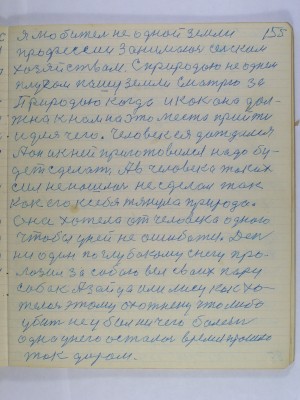 155
Я любител не одной земли
профессии Занимался сельским
хозяйствам. С природою не один
плугом пашу земли Смотрю за
Природою когда и как она дол-
жна к нам на это место прийти
и для чего. Человек ея дождался
А он к ней приготовился надо бу-
дет сделат. А в человека таких
сил не нашлос не сделал так
как его к себя тянула природа.
Она хотела от человека одного
чтобы у ней не ошибатся. Ден
ни один по глубокому снегу про-
лозил за собою вел своих пару
собак А зайца или лису как хо-
телос этому охотнику это либо
убит не убил ничего более
одна у него осталос время прошло
так даром.